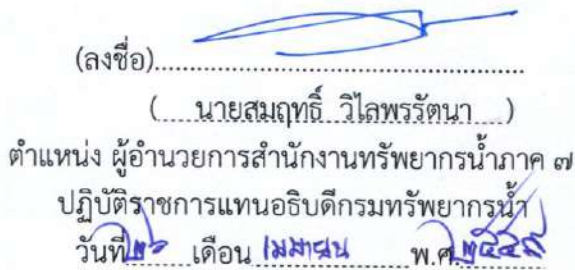 (ลงชื่อ)......................................................
(....นายสมฤทธิ์..วิไลพรรัตนา....)
ตำแหน่ง ผู้อำนวยการสำนักงานทรัพยากรน้ำภาค ๗
ปฏิบัติราชการแทนอธิบดีกรมทรัพยากรน้ำ
วันที่ ๒๖ เดือน เมษายน พ.ศ.